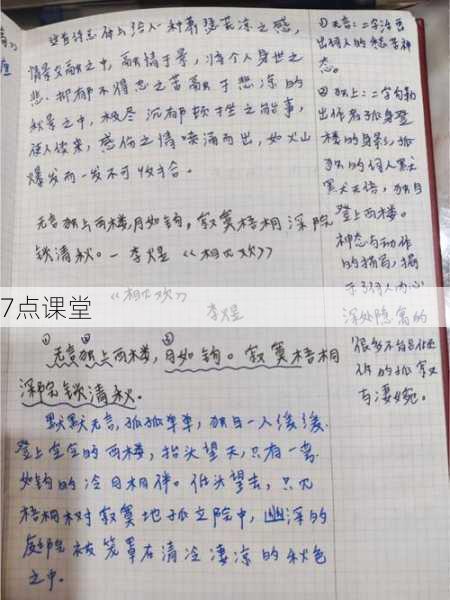 这首词总体上给人一种萧瑟苍凉之感,
情景交融之中, 融情于景, 将个人身世之
悲、抑郁不得志之苦融于悲凉的
秋景之中, 极尽沉郁顿挫之能事,
使人读来, 感伤之情喷涌而出, 如火山
爆发而一发不可收拾。
无言独上西楼, 月如钩, 寂寞梧桐深院
锁清秋。—李煜《相见欢》
《相见欢》
李煜
① ② ③
无言独上西楼, 月如钩。寂寞梧桐
深院锁清秋。
默默无言, 孤孤单单, 独自一人缓缓
登上空空的西楼, 抬头望天, 只有一弯
如钩的冷月相伴。低头望去, 只见
梧桐树寂寞地孤立院中, 幽深的
庭院被笼罩在清冷凄凉的秋色
之中。
①无言: 二字活画
出词人的愁苦神
态。
②独上: 二字勾勒
出作者孤身登
楼的身影, 孤
独的词人默
默无语, 独自
登上西楼。
神态与动作
的描写, 揭
示了词人内心
深处隐寓的
很多不能倾
诉的孤寂
与凄婉。
7点课堂